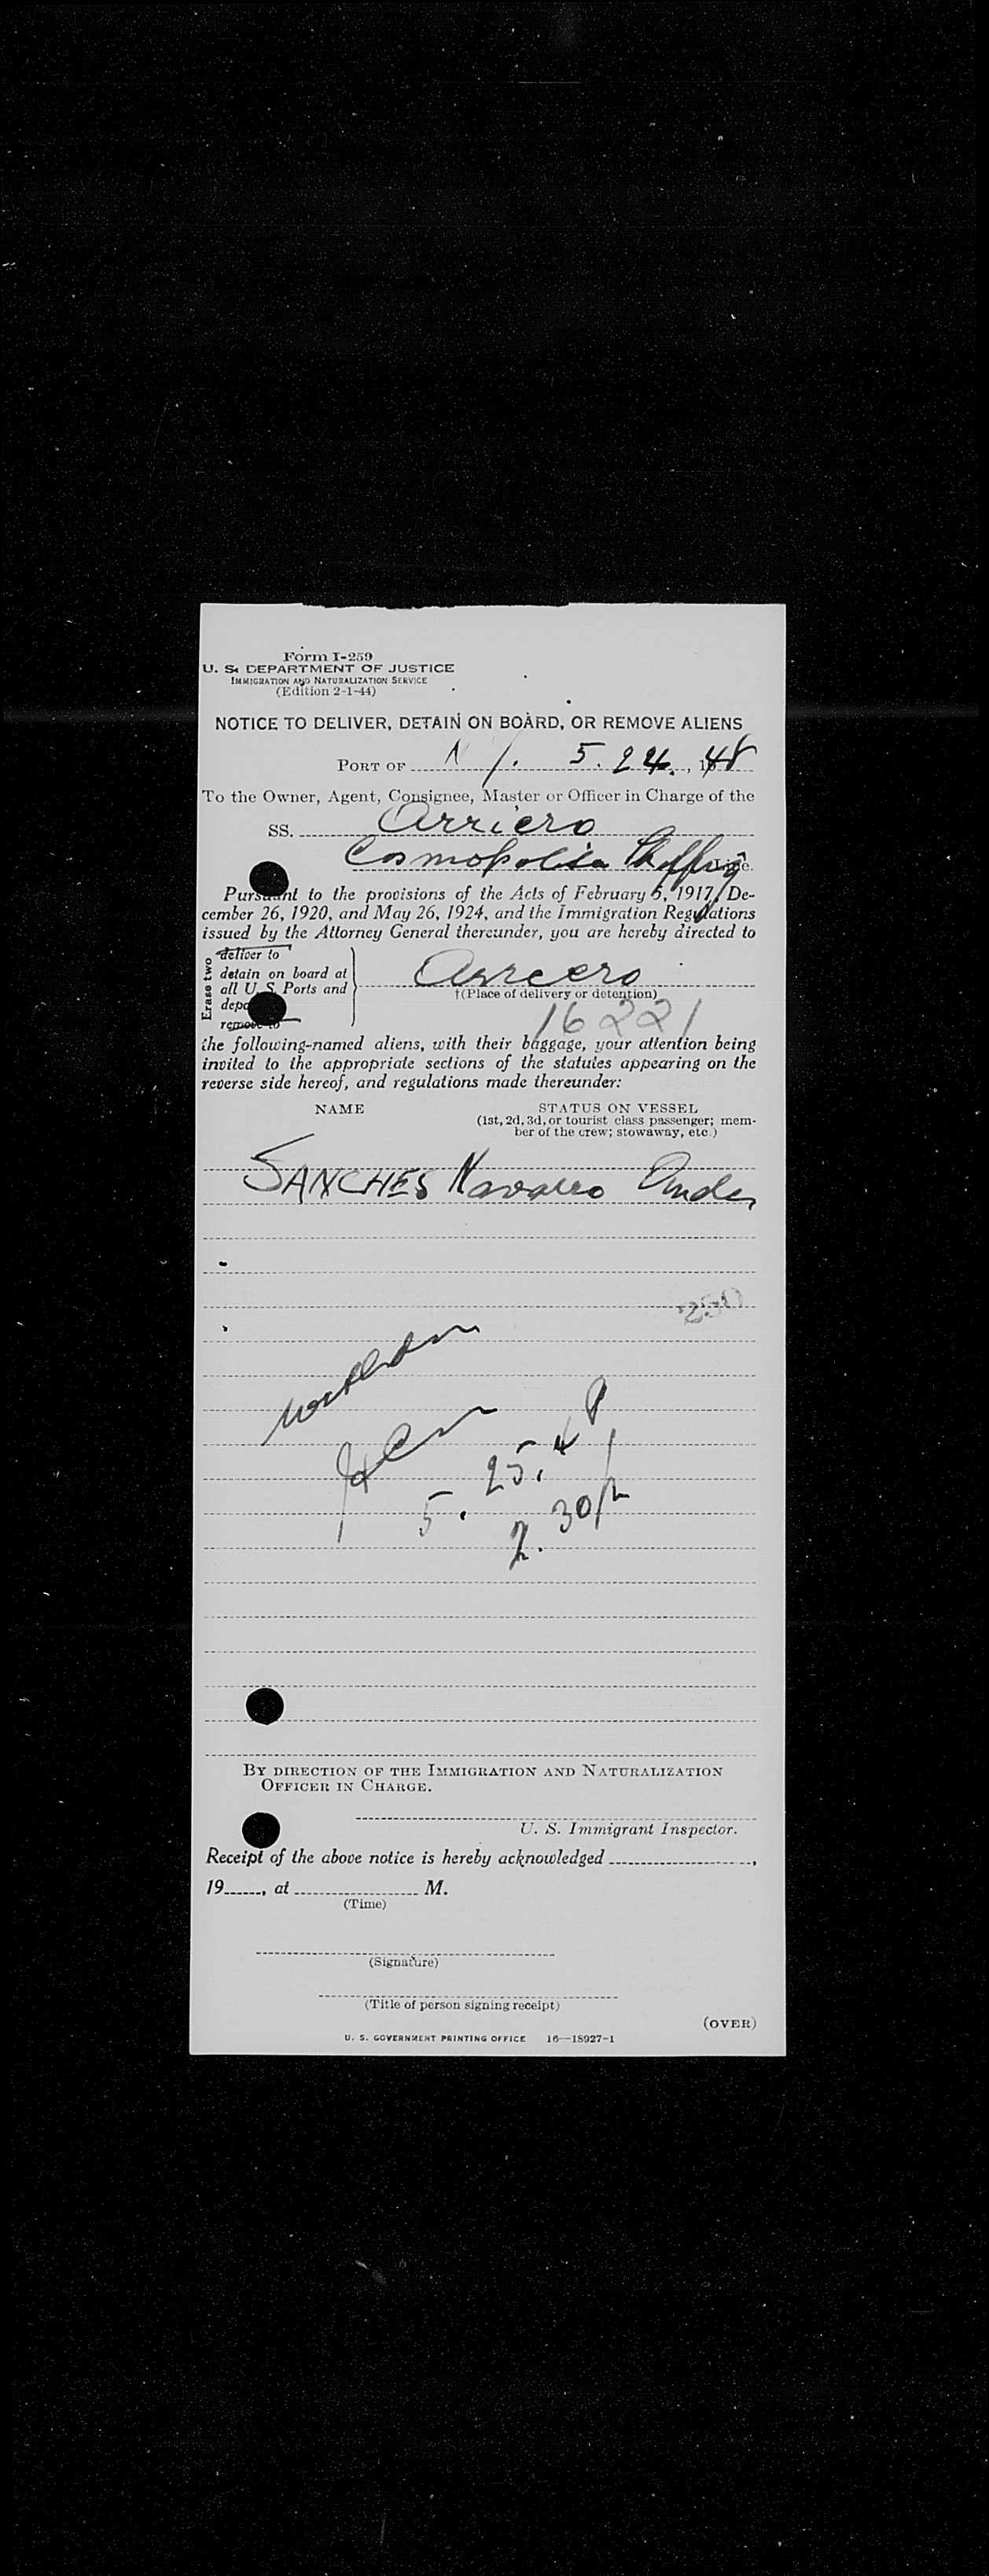 Form I-259
U. S. DEPARTMENT OF JUSTICE
IMMIGRATION AND NATURALIZATION SERVICE
(Edition 2-1-44)
NOTICE TO DELIVER, DETAIN ON BOARD, OR REMOVE ALIENS
PORT OF N Y. 5. 24., 1948
To the Owner, Agent, Consignee, Master or Officer in Charge of the
SS. Arriero
Cosmopolita Line.
Pursuant to the provisions of the Acts of February 5, 1917, De-
cember 26, 1920, and May 26, 1924, and the Immigration Regulations
issued by the Attorney General thereunder, you are hereby directed to
Erase two
deliver to
detain on board at
all U. S. Ports and
depo
remove to
Arriero
†(Place of delivery or detention)
16221
the following-named aliens, with their baggage, your attention being
invited to the appropriate sections of the statutes appearing on the
reverse side hereof, and regulations made thereunder:
NAME STATUS ON VESSEL
(1st, 2d, 3d, or tourist class passenger; mem-
ber of the crew; stowaway, etc.)
SANCHES Navarro
250
5. 25. 48
2. 30 p
BY DIRECTION OF THE IMMIGRATION AND NATURALIZATION
OFFICER IN CHARGE.
U. S. Immigrant Inspector.
Receipt of the above notice is hereby acknowledged ,
19 , at M.
(Time)
(Signature)
(Title of person signing receipt)
(OVER)
U. S. GOVERNMENT PRINTING OFFICE 16—18927-1